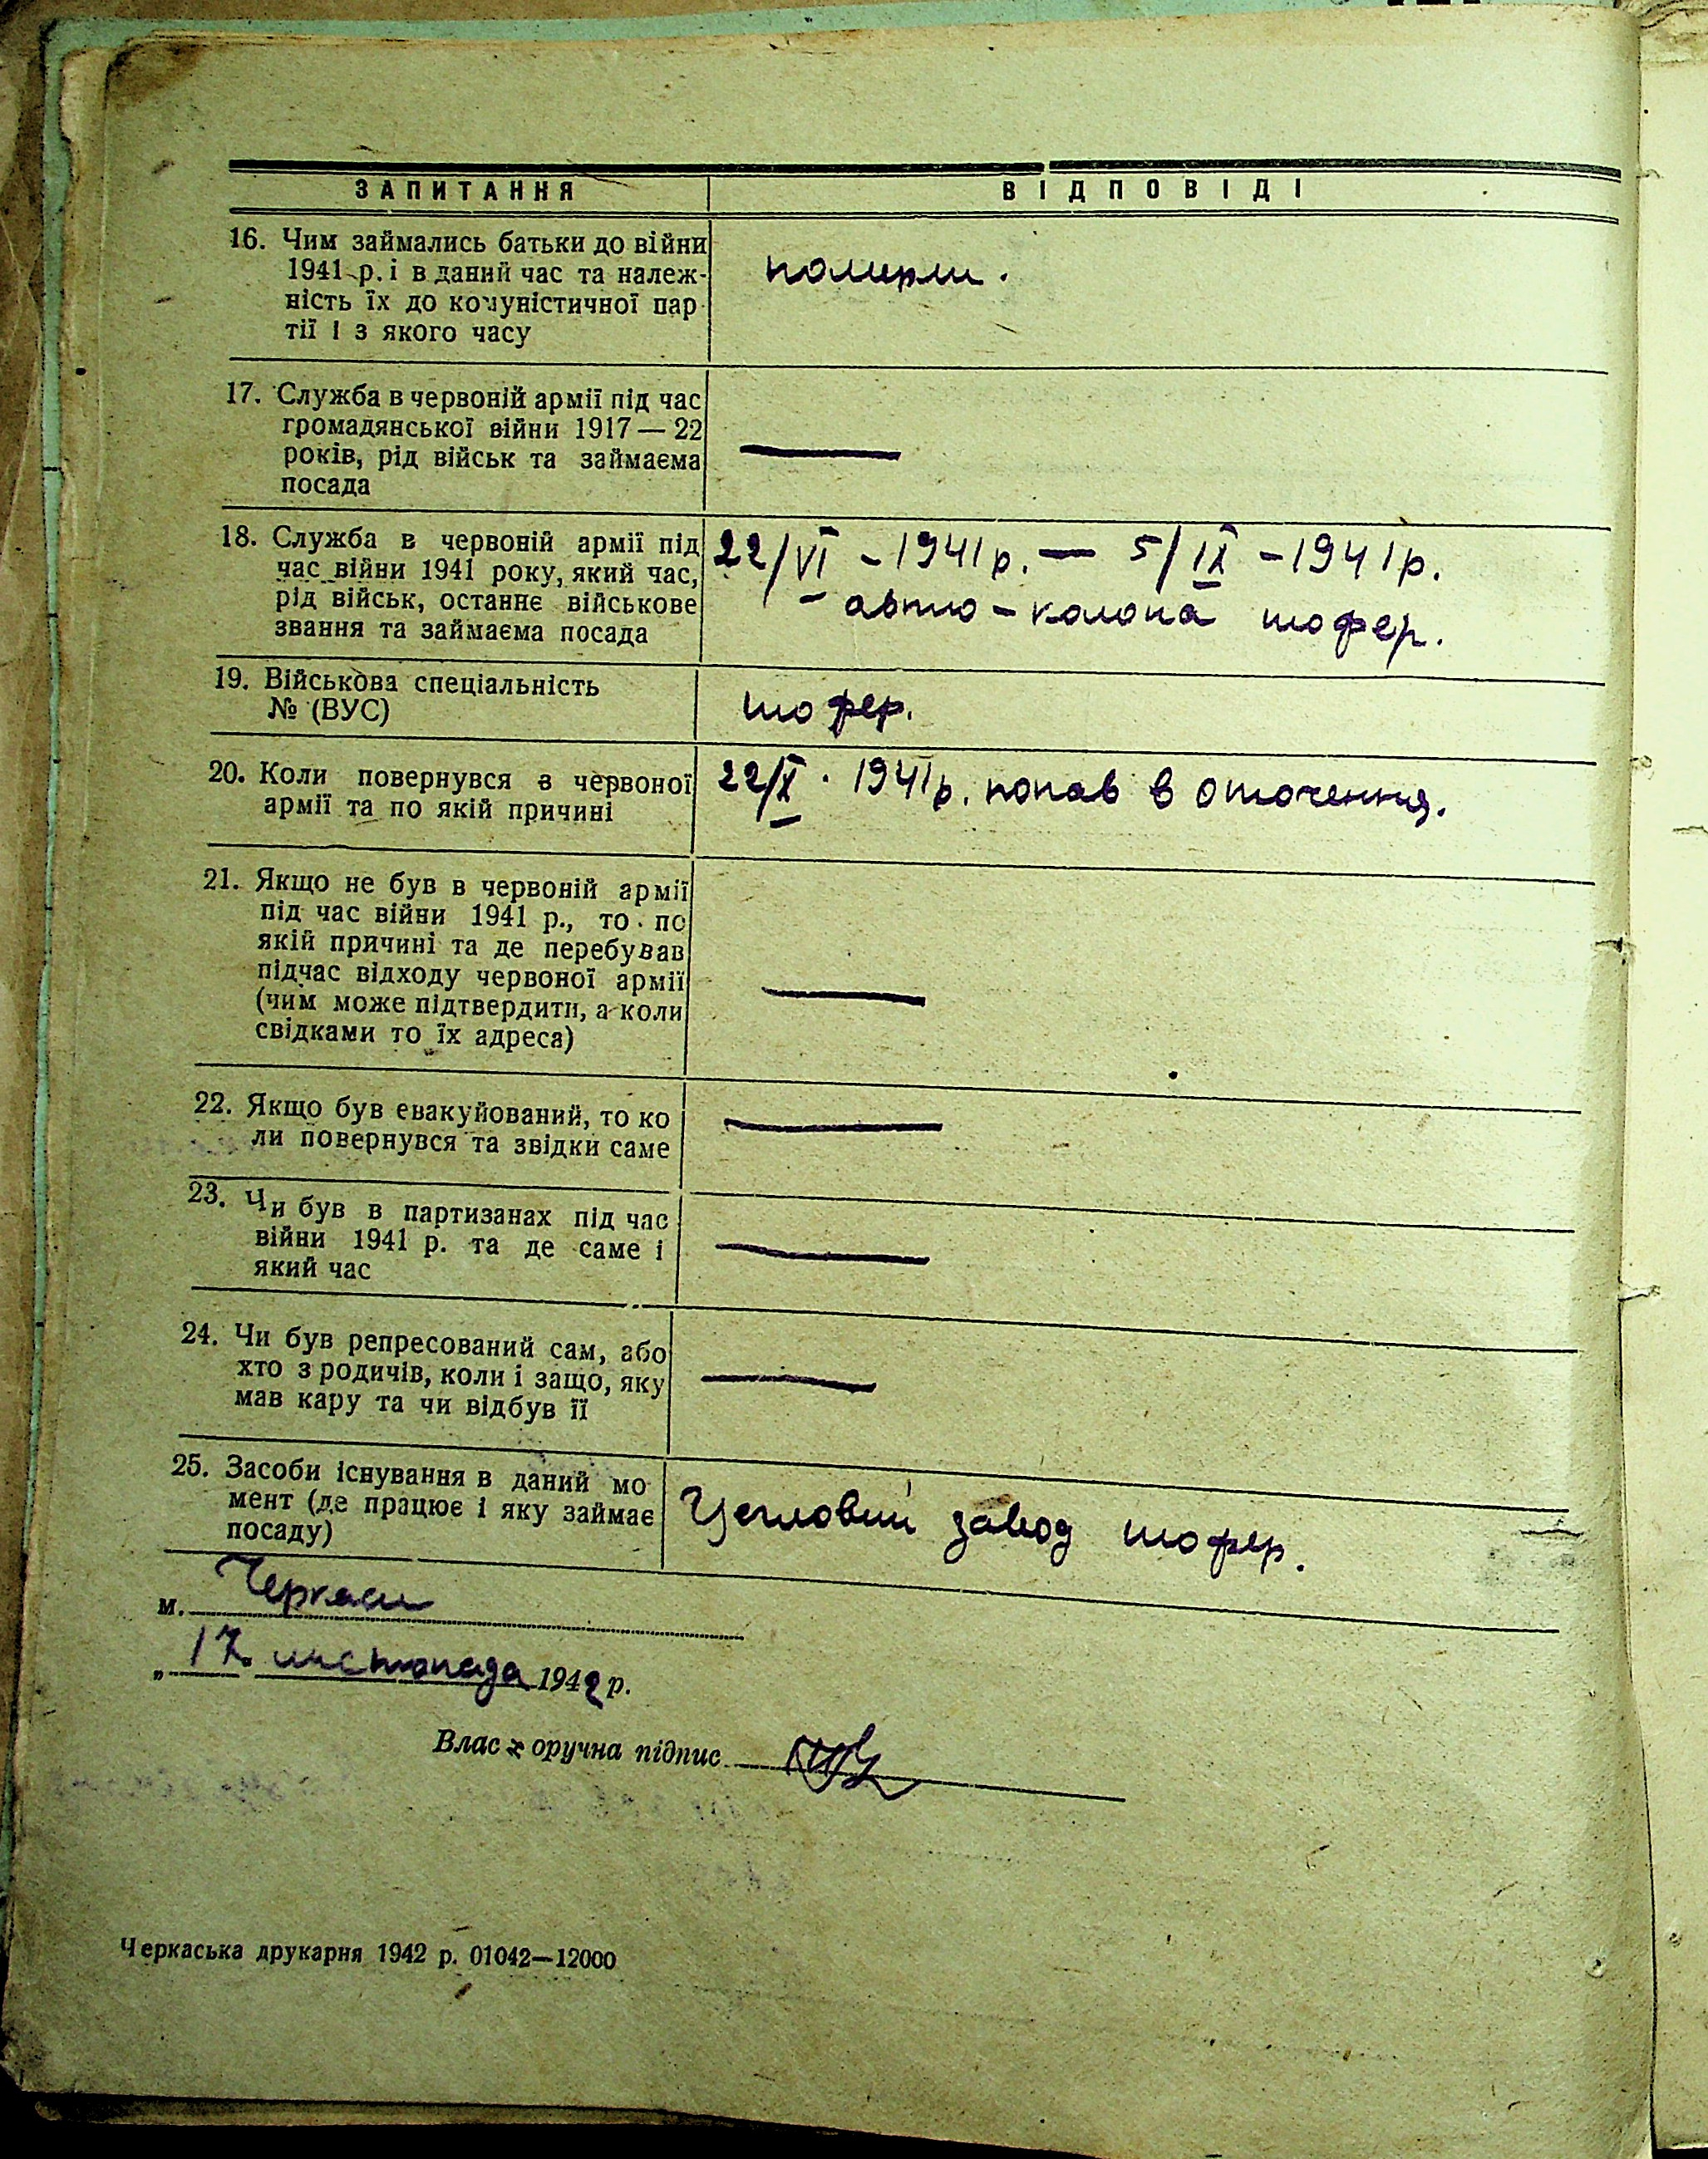 ЗАПИТАННЯ ВІДПОВІДІ
16. Чим займались батьки до війни
1941 р. і в даний час та належ-
ність їх до комуністичної пар-
тії і з якого часу
померли.
17. Служба в червоній армії під час
громадянської війни 1917 — 22
років, рід військ та займаєма
посада
—
18. Служба в червоній армії під
час війни 1941 року, який час,
рід військ, останнє військове
звання та займаєма посада
22/VI - 1941 р. — 5/IX - 1941 р.
авто - колона шофер.
19. Військова спеціальність
№ (ВУС)
шофер.
20. Коли повернувся з червоної
армії та по якій причині
22/X. 1941 р. попав в оточення.
21. Якщо не був в червоній армії
під час війни 1941 р., то по
якій причині та де перебував
підчас відходу червоної армії
(чим може підтвердити, а коли
свідками то їх адреса)
—
22. Якщо був евакуйований, то ко
ли повернувся та звідки саме
—
23. Чи був в партизанах під час
війни 1941 р. та де саме і
який час
—
24. Чи був репресований сам, або
хто з родичів, коли і защо, яку
мав кару та чи відбув її
—
25. Засоби існування в даний мо
мент (де працює і яку займає
посаду)
Цегловий завод шофер.
м. Черкаси
„ 17. листопада 1942 р.
Власоручна підпис
Черкаська друкарня 1942 р. 01042—12000